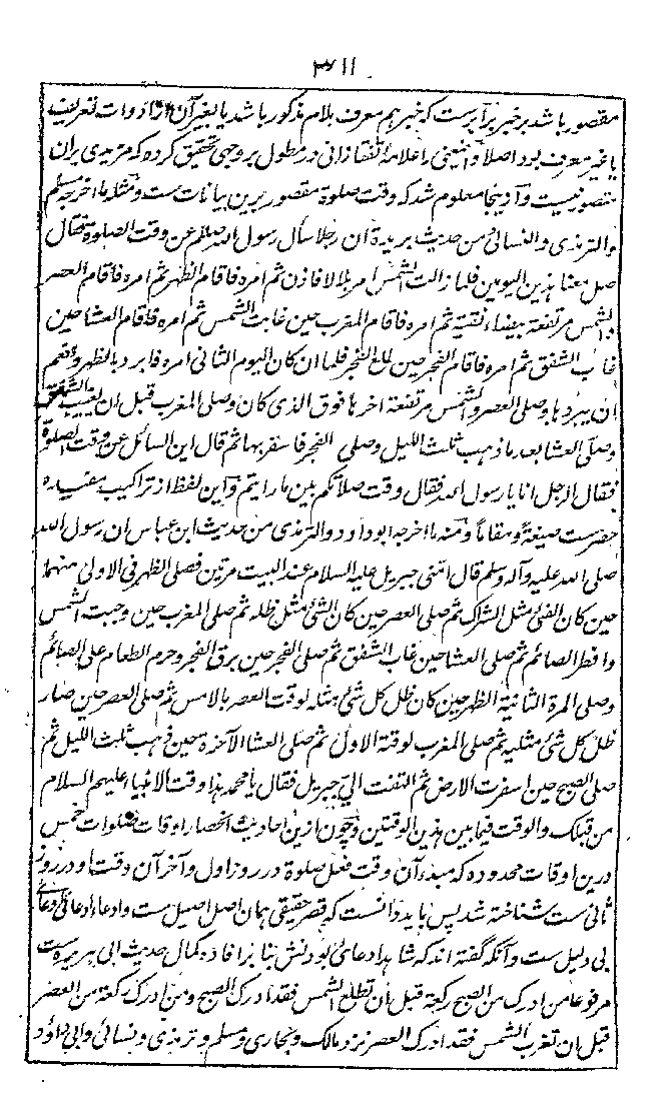 ۳۱۱
مقصور باشد بر خبر برابرست که خبر هم معرف بلام مذکور باشد یا بغیر آن از ادوات تعریف
یا غیر معرف بود اصلا و اینمعنی را علامهٔ تفتازانی در مطول بروجهی تحقیق کرده که مزیدی بران
متصور نیست و از ینجا معلوم شد که وقت صلوة مقصور برین بیانات ست و مثله ما اخرجه مسلم
والترمذی والنسائی من حدیث بریدة ان رجلا سأل رسول الله صلعم عن وقت الصلوة فقال
صل معنا هذین الیومین فلما زالت الشمس امر بلالا فاذن ثم امره فاقام الظهر ثم امره فاقام العصر
والشمس مرتفعة بیضاء نقیة ثم امره فاقام المغرب حین غابت الشمس ثم امره فاقام العشا حین
غاب الشفق ثم امره فاقام الفجر حین طلع الفجر فلما ان کان الیوم الثانی امره فابرد بالظهر وانعم
ان یبرد بها وصلی العصر والشمس مرتفعة اخرها فوق الذی کان وصلی المغرب قبل ان یغیب الشفق
وصلی العشا بعد ما ذهب ثلث اللیل وصلی الفجر فاسفر بها ثم قال این السائل عن وقت الصلوة
فقال الرجل انا یا رسول الله فقال وقت صلاتکم بین ما رایتم و این لفظ از تراکیب مفیده
حصرست صیغةً ومقاماً ومنه ما اخرجه ابوداود والترمذی من حدیث ابن عباس ان رسول الله
صلی الله علیه وآله وسلم قال امّنی جبریل علیه السلام عند البیت مرتین فصلی الظهر فی الاولی منهما
حین کان الفئ مثل الشراک ثم صلی العصر حین کان الشئ مثل ظله ثم صلی المغرب حین وجبت الشمس
وافطر الصائم ثم صلی العشا حین غاب الشفق ثم صلی الفجر حین برق الفجر وحرم الطعام علی الصائم
وصلی المرة الثانیة الظهر حین کان ظل کل شئ مثله لوقت العصر بالامس ثم صلی العصر حین صار
ظل کل شئ مثلیه ثم صلی المغرب لوقته الاول ثم صلی العشا الآخرة حین ذهب ثلث اللیل ثم
صلی الصبح حین اسفرت الارض ثم التفت الیّ جبریل فقال یا محمد هذا وقت الانبیاء علیهم السلام
من قبلک والوقت فیما بین هذین الوقتین و چون ازین احادیث انحصار اوقات صلوات خمس
درین اوقات محدوده که مبدء آن وقت فعل صلوة در روز اول و آخر آن وقت او در روز
ثانی ست شناخته شد پس باید دانست که قصر حقیقی همان اصل اصیل ست وادعاء ادعائی ادعای
بی دلیل ست و آنکه گفته اند که شاید ادعائی بودنش بنا بر افاده کمال حدیث ابی هریره ست
مرفوعا من ادرک من الصبح رکعة قبل ان تطلع الشمس فقد ادرک الصبح ومن ادرک رکعة من العصر
قبل ان تغرب الشمس فقد ادرک العصر نزد مالک و بخاری و مسلم و ترمذی و نسائی و ابی داؤد